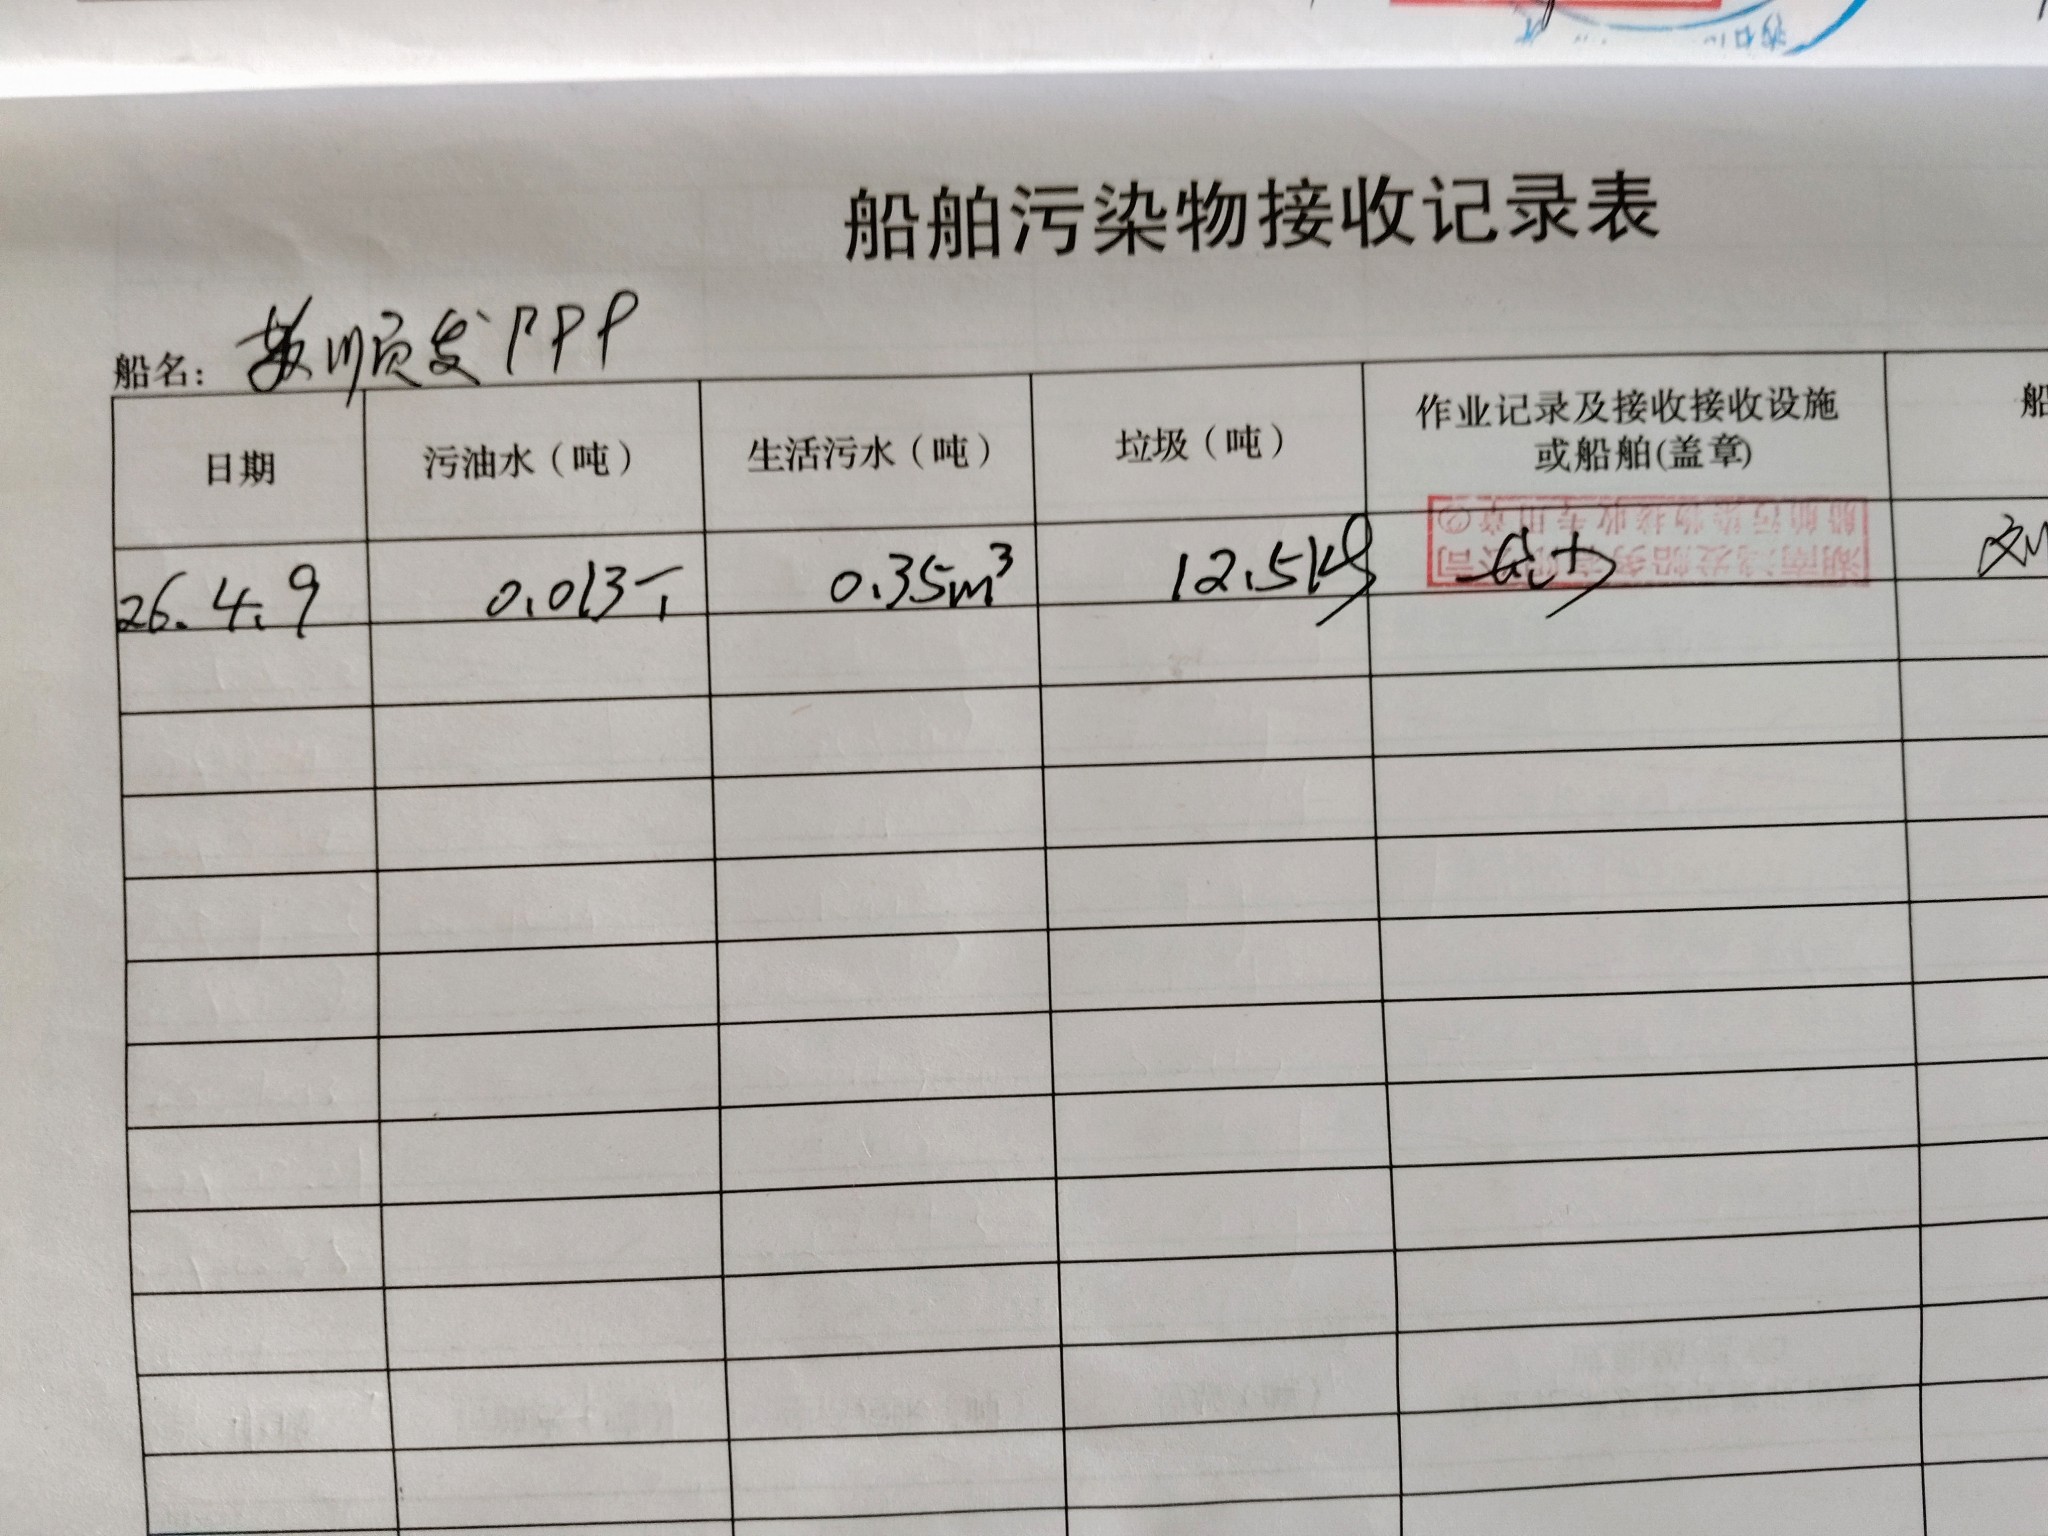 船舶污染物接收记录表
船名： 顺发
日期 污油水（吨） 生活污水（吨） 垃圾（吨） 作业记录及接收接收设施 船
或船舶(盖章)
船舶污染物接收专用章②
26.4.9 0.013 0.35m³ 12.5kg